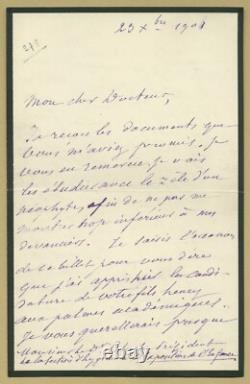 23 Xbre 1901
Mon cher Docteur,
Je reçois les documents que
vous m'aviez promis. Je
vous en remercie. Je vais
les étudier avec le zèle d'un
néophyte, afin de ne pas me
montrer trop inférieur à mes
devanciers. Je saisis l'occasion
de ce billet pour vous dire
que j'ai appris la candi-
dature de votre fils Henry
aux palmes académiques.
Je vous querellerais presque
Monsieur le Dr Président
de la Société d'hygiène de la France